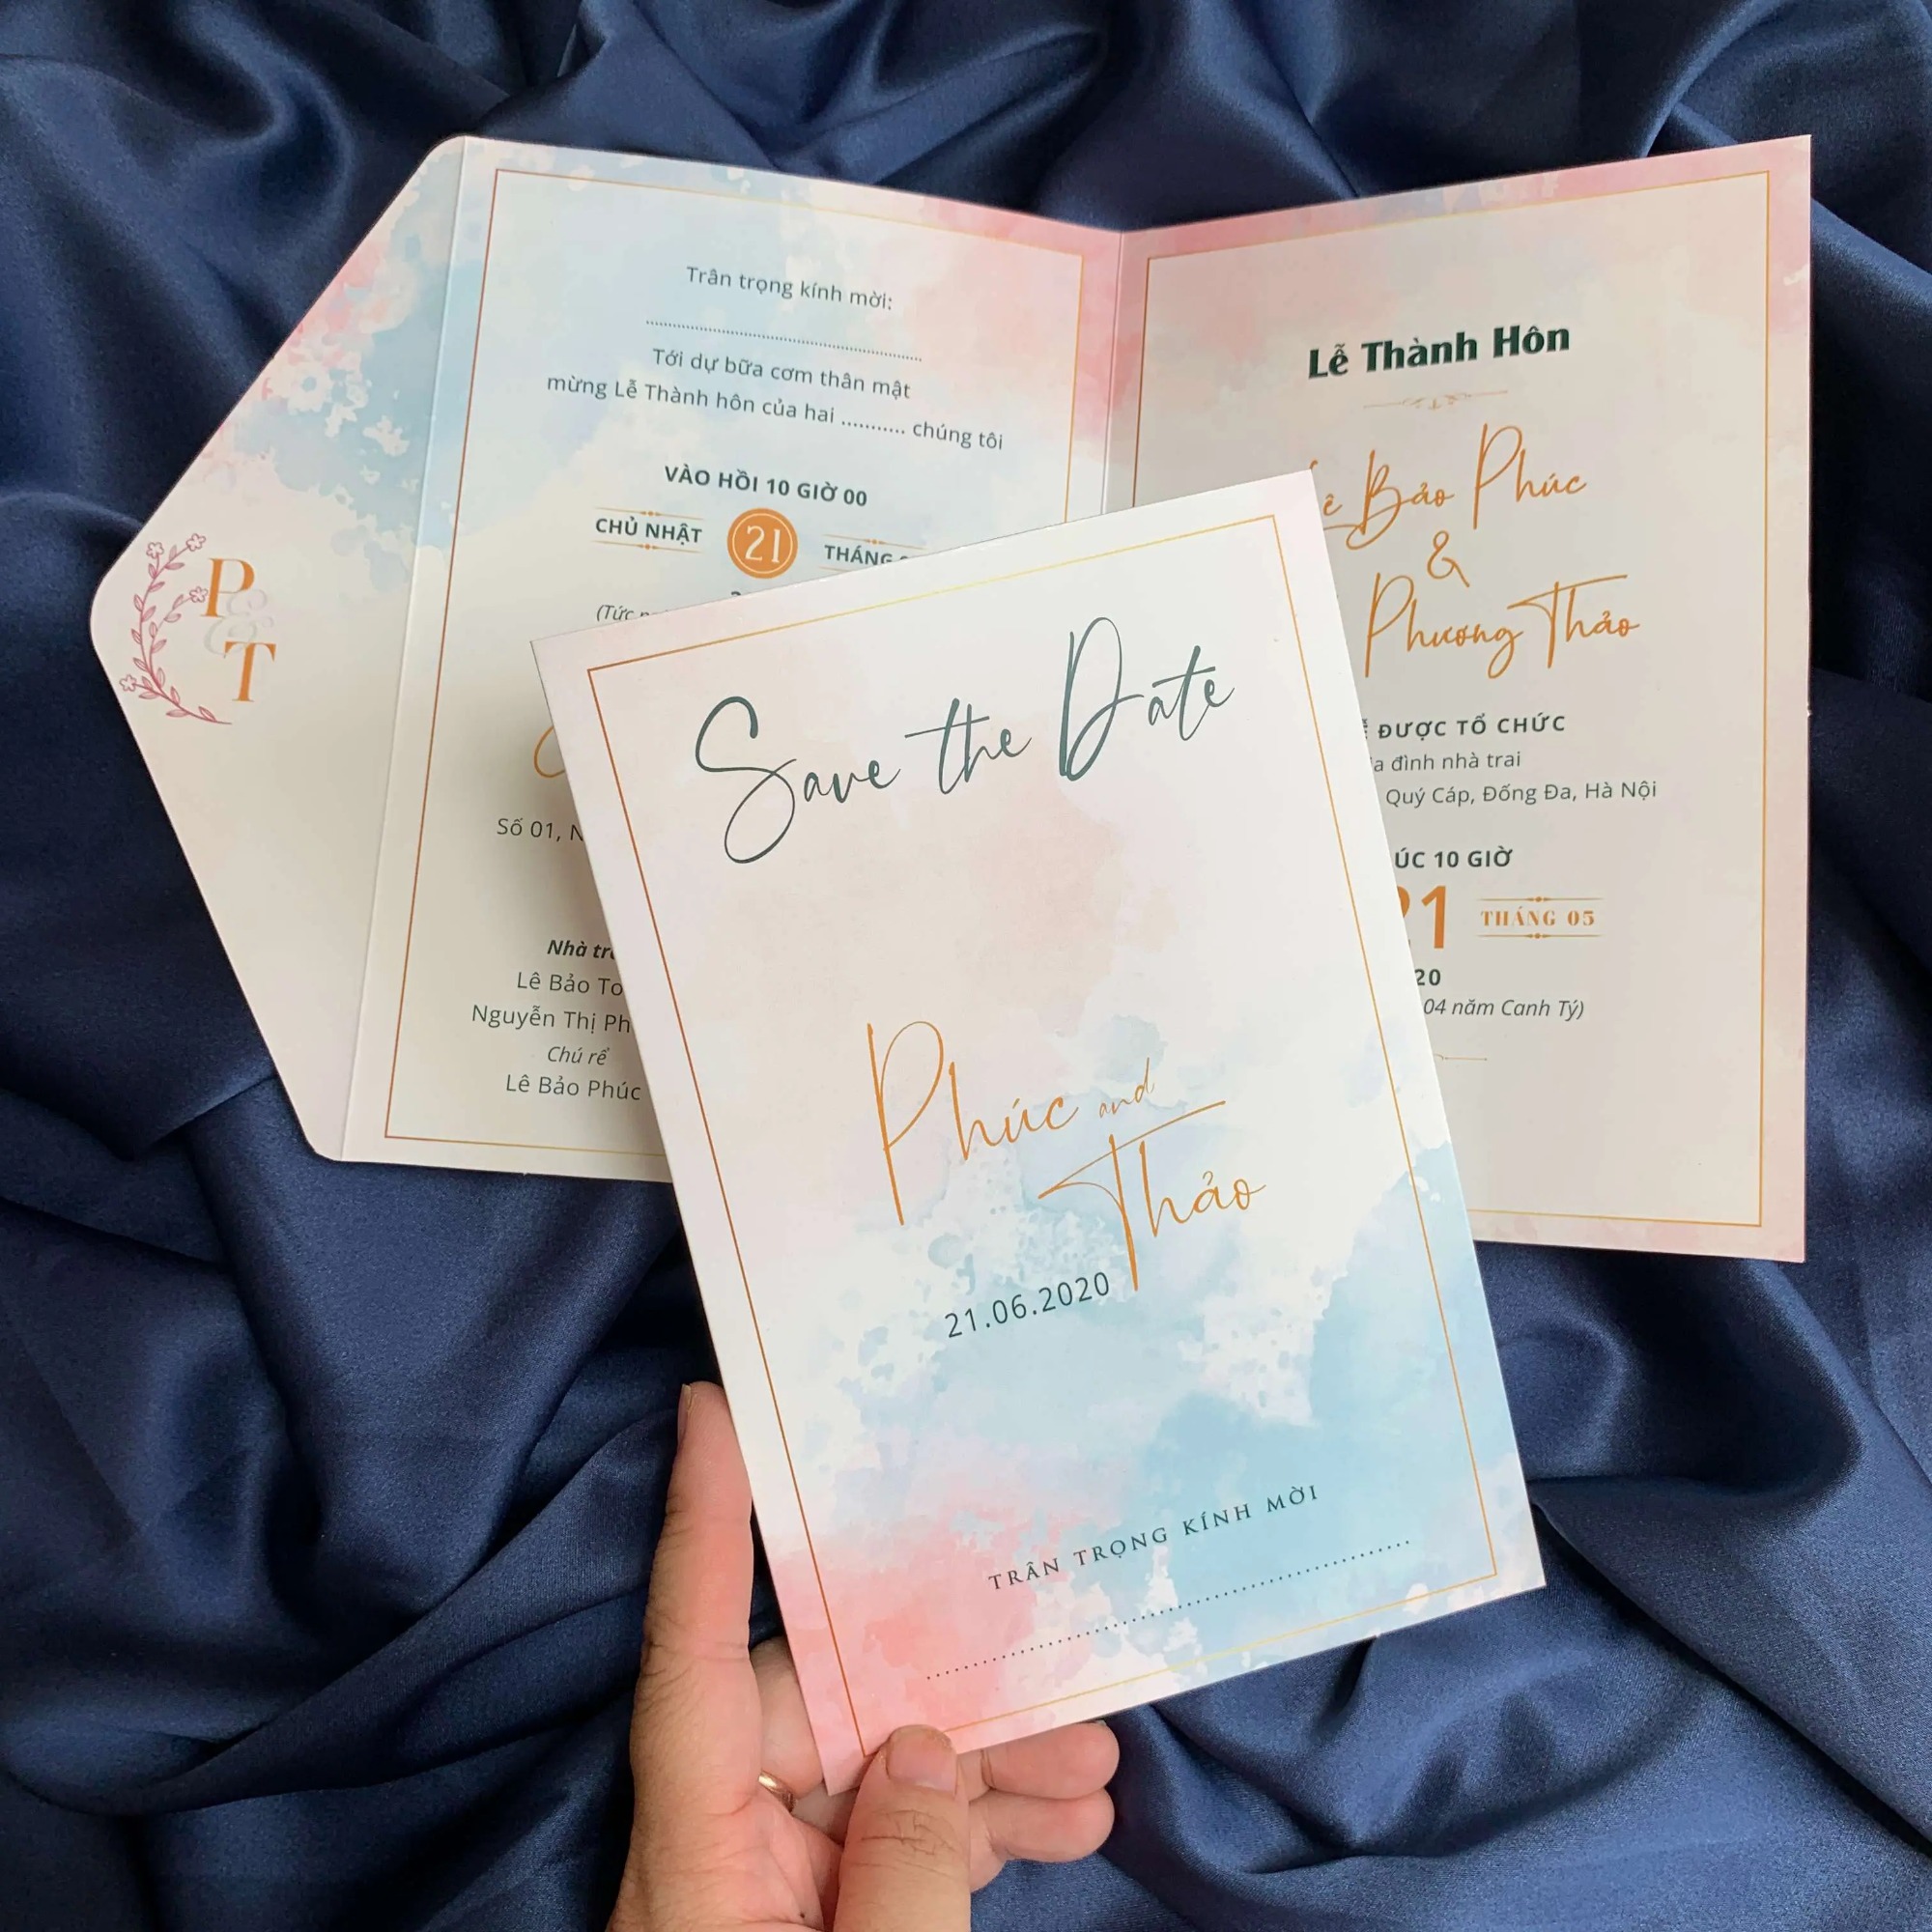 P
&
T
Trân trọng kính mời:
Tới dự bữa cơm thân mật
mừng Lễ Thành hôn của hai ........... chúng tôi
VÀO HỒI 10 GIỜ 00
CHỦ NHẬT 21 THÁNG
(Tức
Số 01,
Nhà
Lê Bảo
Nguyễn Thị
Chú rể
Lê Bảo Phúc
Lễ Thành Hôn
Bảo Phúc
&
Phương Thảo
ĐƯỢC TỔ CHỨC
đình nhà trai
Quý Cáp, Đống Đa, Hà Nội
10 GIỜ
21 THÁNG 05
20
04 năm Canh Tý)
Save the Date
Phúc and
Thảo
21.06.2020
TRÂN TRỌNG KÍNH MỜI